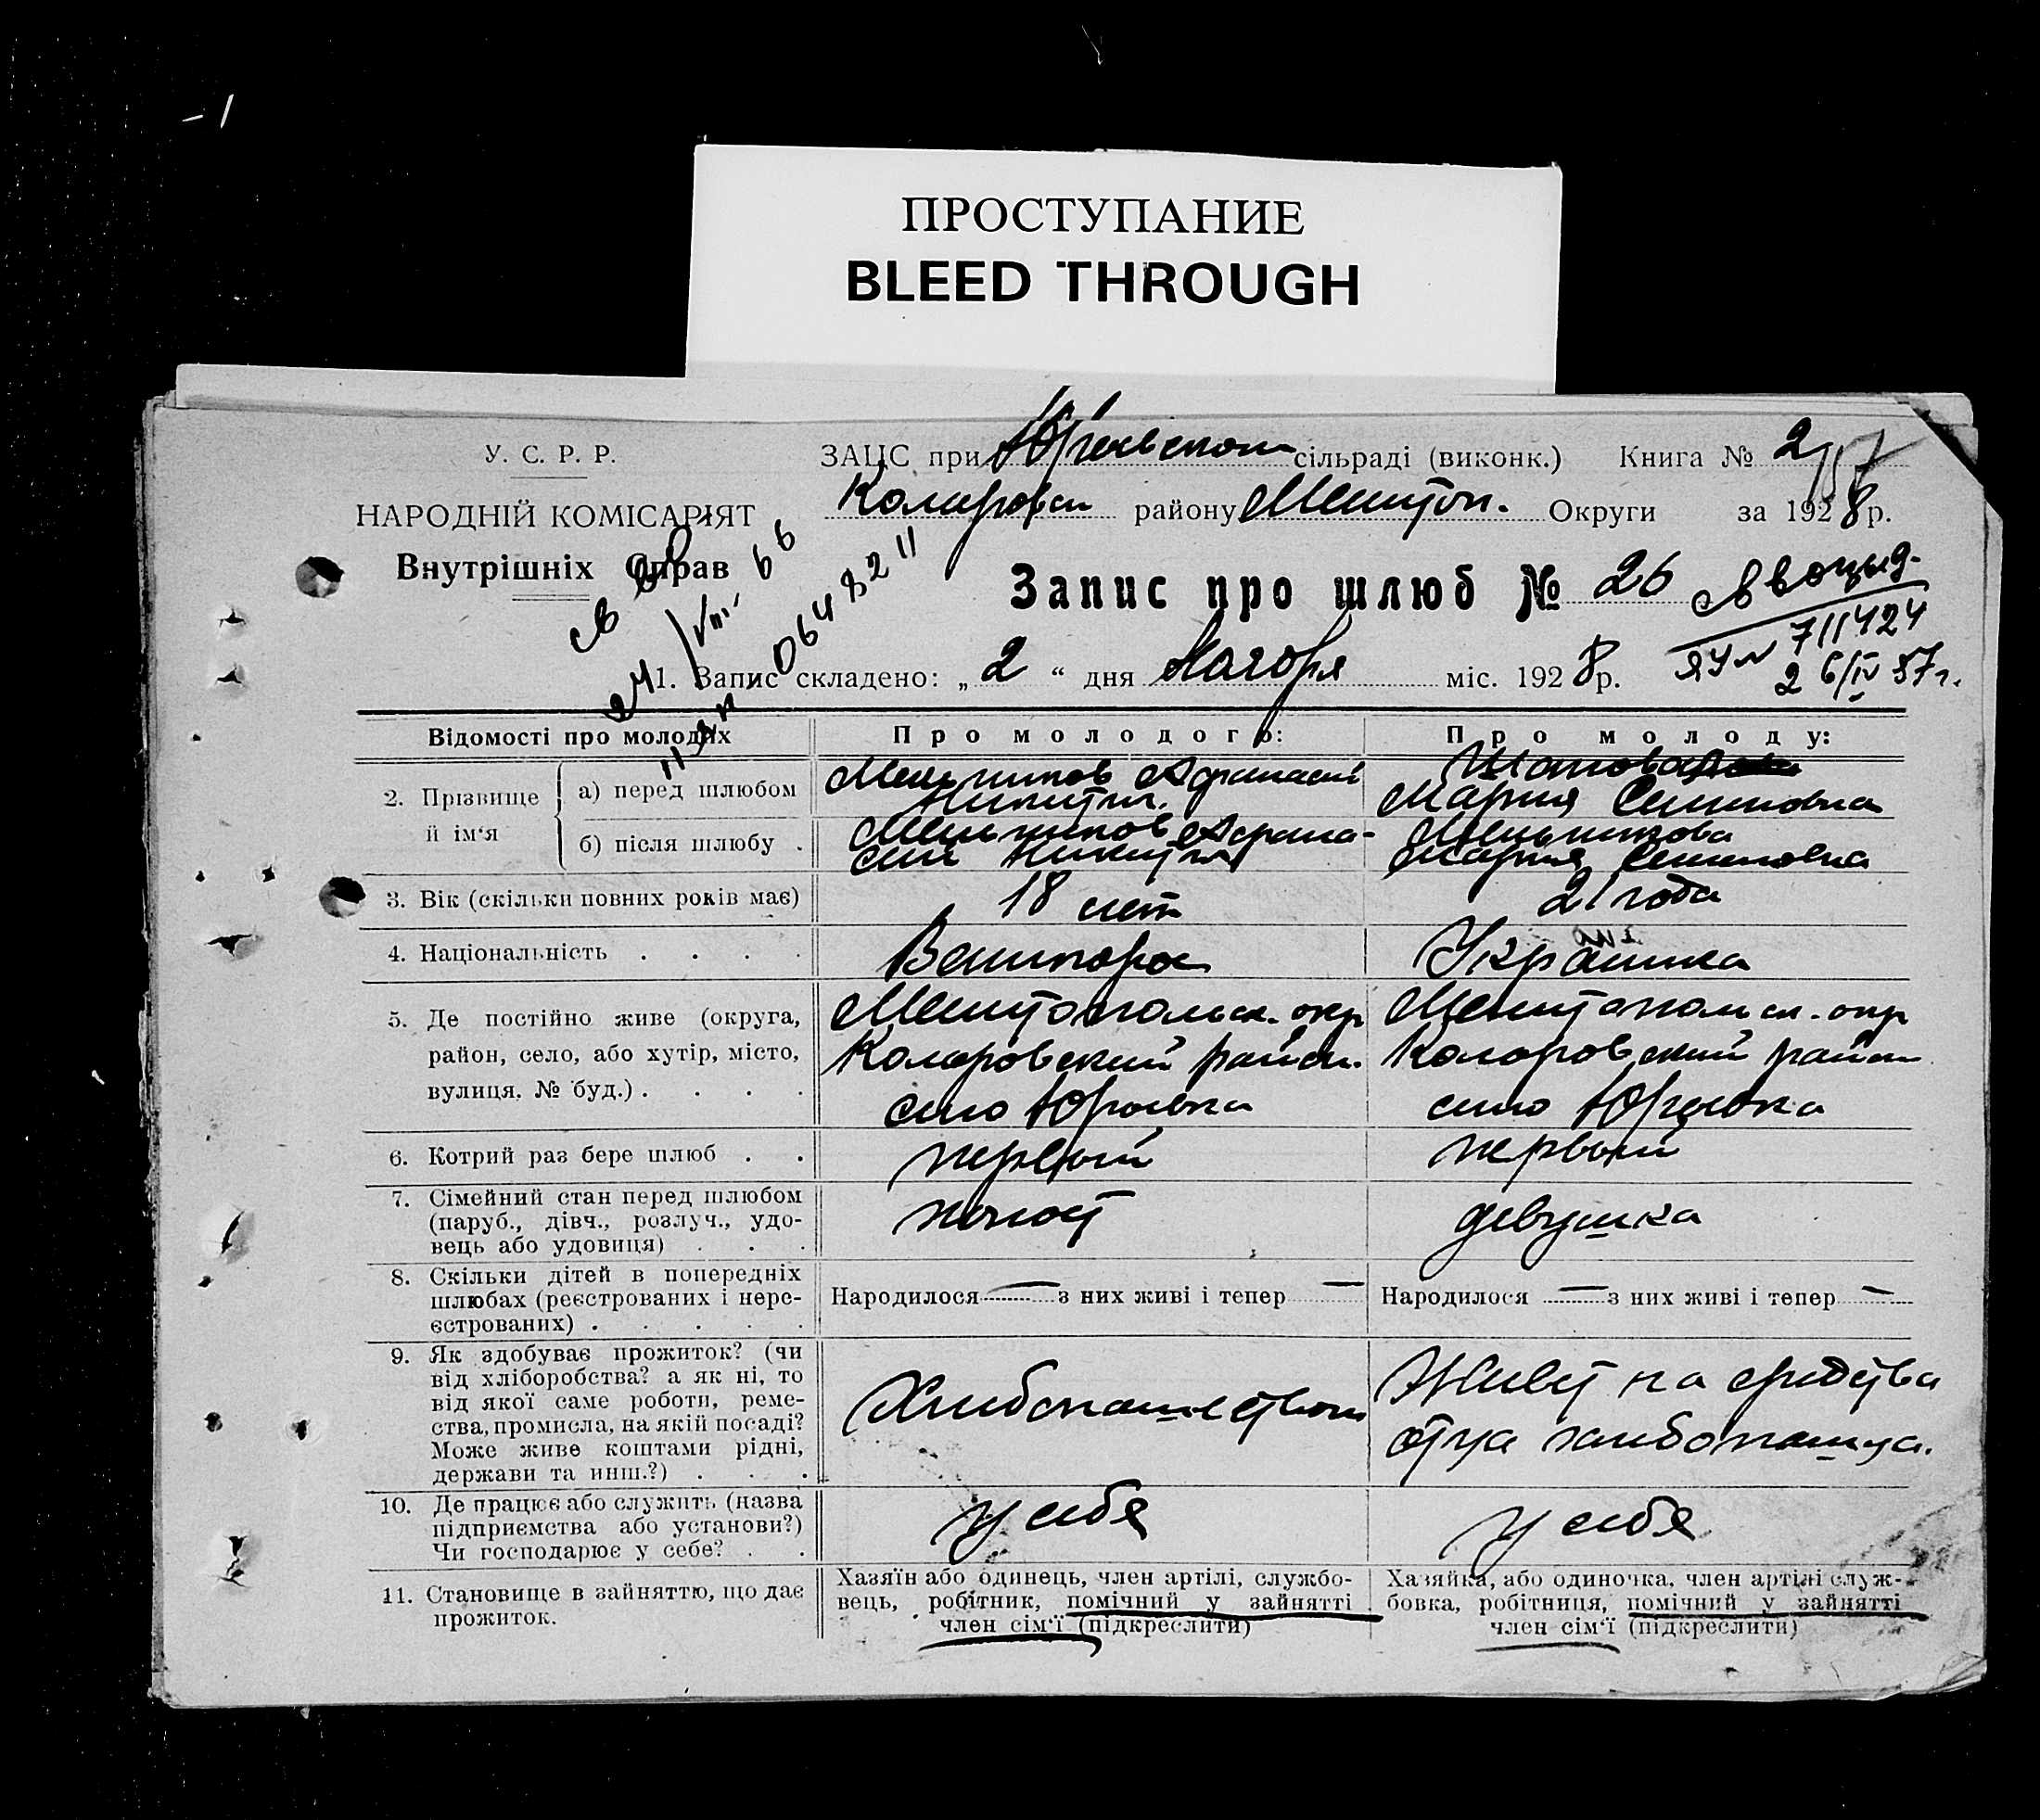 ПРОСТУПАНИЕ
BLEED THROUGH
У. С. Р. Р.
НАРОДНІЙ КОМІСАРІЯТ
Внутрішніх Справ
ЗАЦС при Юрьевском сільраді (виконк.) Книга № 2
району Мелитоп. Округи за 1928 р.
Запис про шлюб № 26
711424
26/IV 57 г.
1. Запис складено: „2“ дня міс. 1928 р.
Відомості про молодих
Про молодого:
Про молоду:
2. Прізвище й ім'я
а) перед шлюбом
Мельников Афанасий
Никит.
Мария Семеновна
б) після шлюбу
Мельников Афана-
сий Никит.
Мельникова
Мария Семеновна
3. Вік (скільки повних років має)
18 лет
21 года
4. Національність
Украинка
5. Де постійно живе (округа,
район, село, або хутір, місто,
вулиця, № буд.)
Мелитопольск. окр
Коларовский район.
село Юрьевка
Мелитопольск. окр
Коларовский район
село Юрьевка
6. Котрий раз бере шлюб
первый
первый
7. Сімейний стан перед шлюбом
(паруб., дівч., розлуч., удо-
вець або удовиця)
холост
девушка
8. Скільки дітей в попередніх
шлюбах (реєстрованих і нере-
єстрованих)
Народилося — з них живі і тепер —
Народилося — з них живі і тепер —
9. Як здобуває прожиток? (чи
від хліборобства? а як ні, то
від якої саме роботи, реме-
ства, промисла, на якій посаді?
Може живе коштами рідні,
держави та инш.?)
Хлебопашеством
Живет на средства
отца хлебопашца.
10. Де працює або служить (назва
підприємства або установи?)
Чи господарює у себе?
у себя
у себя
11. Становище в зайняттю, що дає
прожиток.
Хазяїн або одинець, член артілі, службо-
вець, робітник, помічний у зайнятті
член сім'ї (підкреслити)
Хазяйка, або одиночка, член артілі служ-
бовка, робітниця, помічний у зайнятті
член сім'ї (підкреслити)